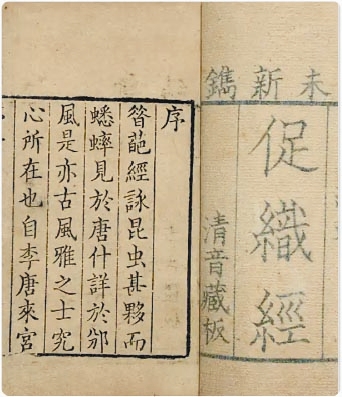 未新鐫
促織經
清音藏板
序
簪葩經詠昆虫甚夥而
蟋蟀見於唐什詳於邠
風是亦古風雅之士究
心所在也自李唐來宮